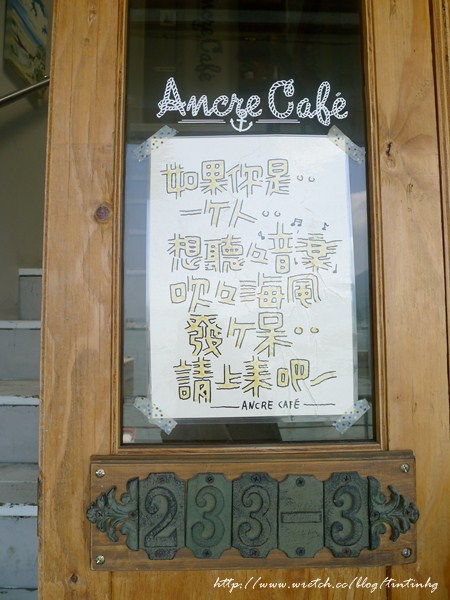 Ancre Café
如果你是..
一个人..
想聽ㄍ音樂
吹ㄍ海風
發ㄍ呆..
請上來吧~
ANCRE CAFÉ
233-3
http://www.wretch.cc/blog/tintinhg